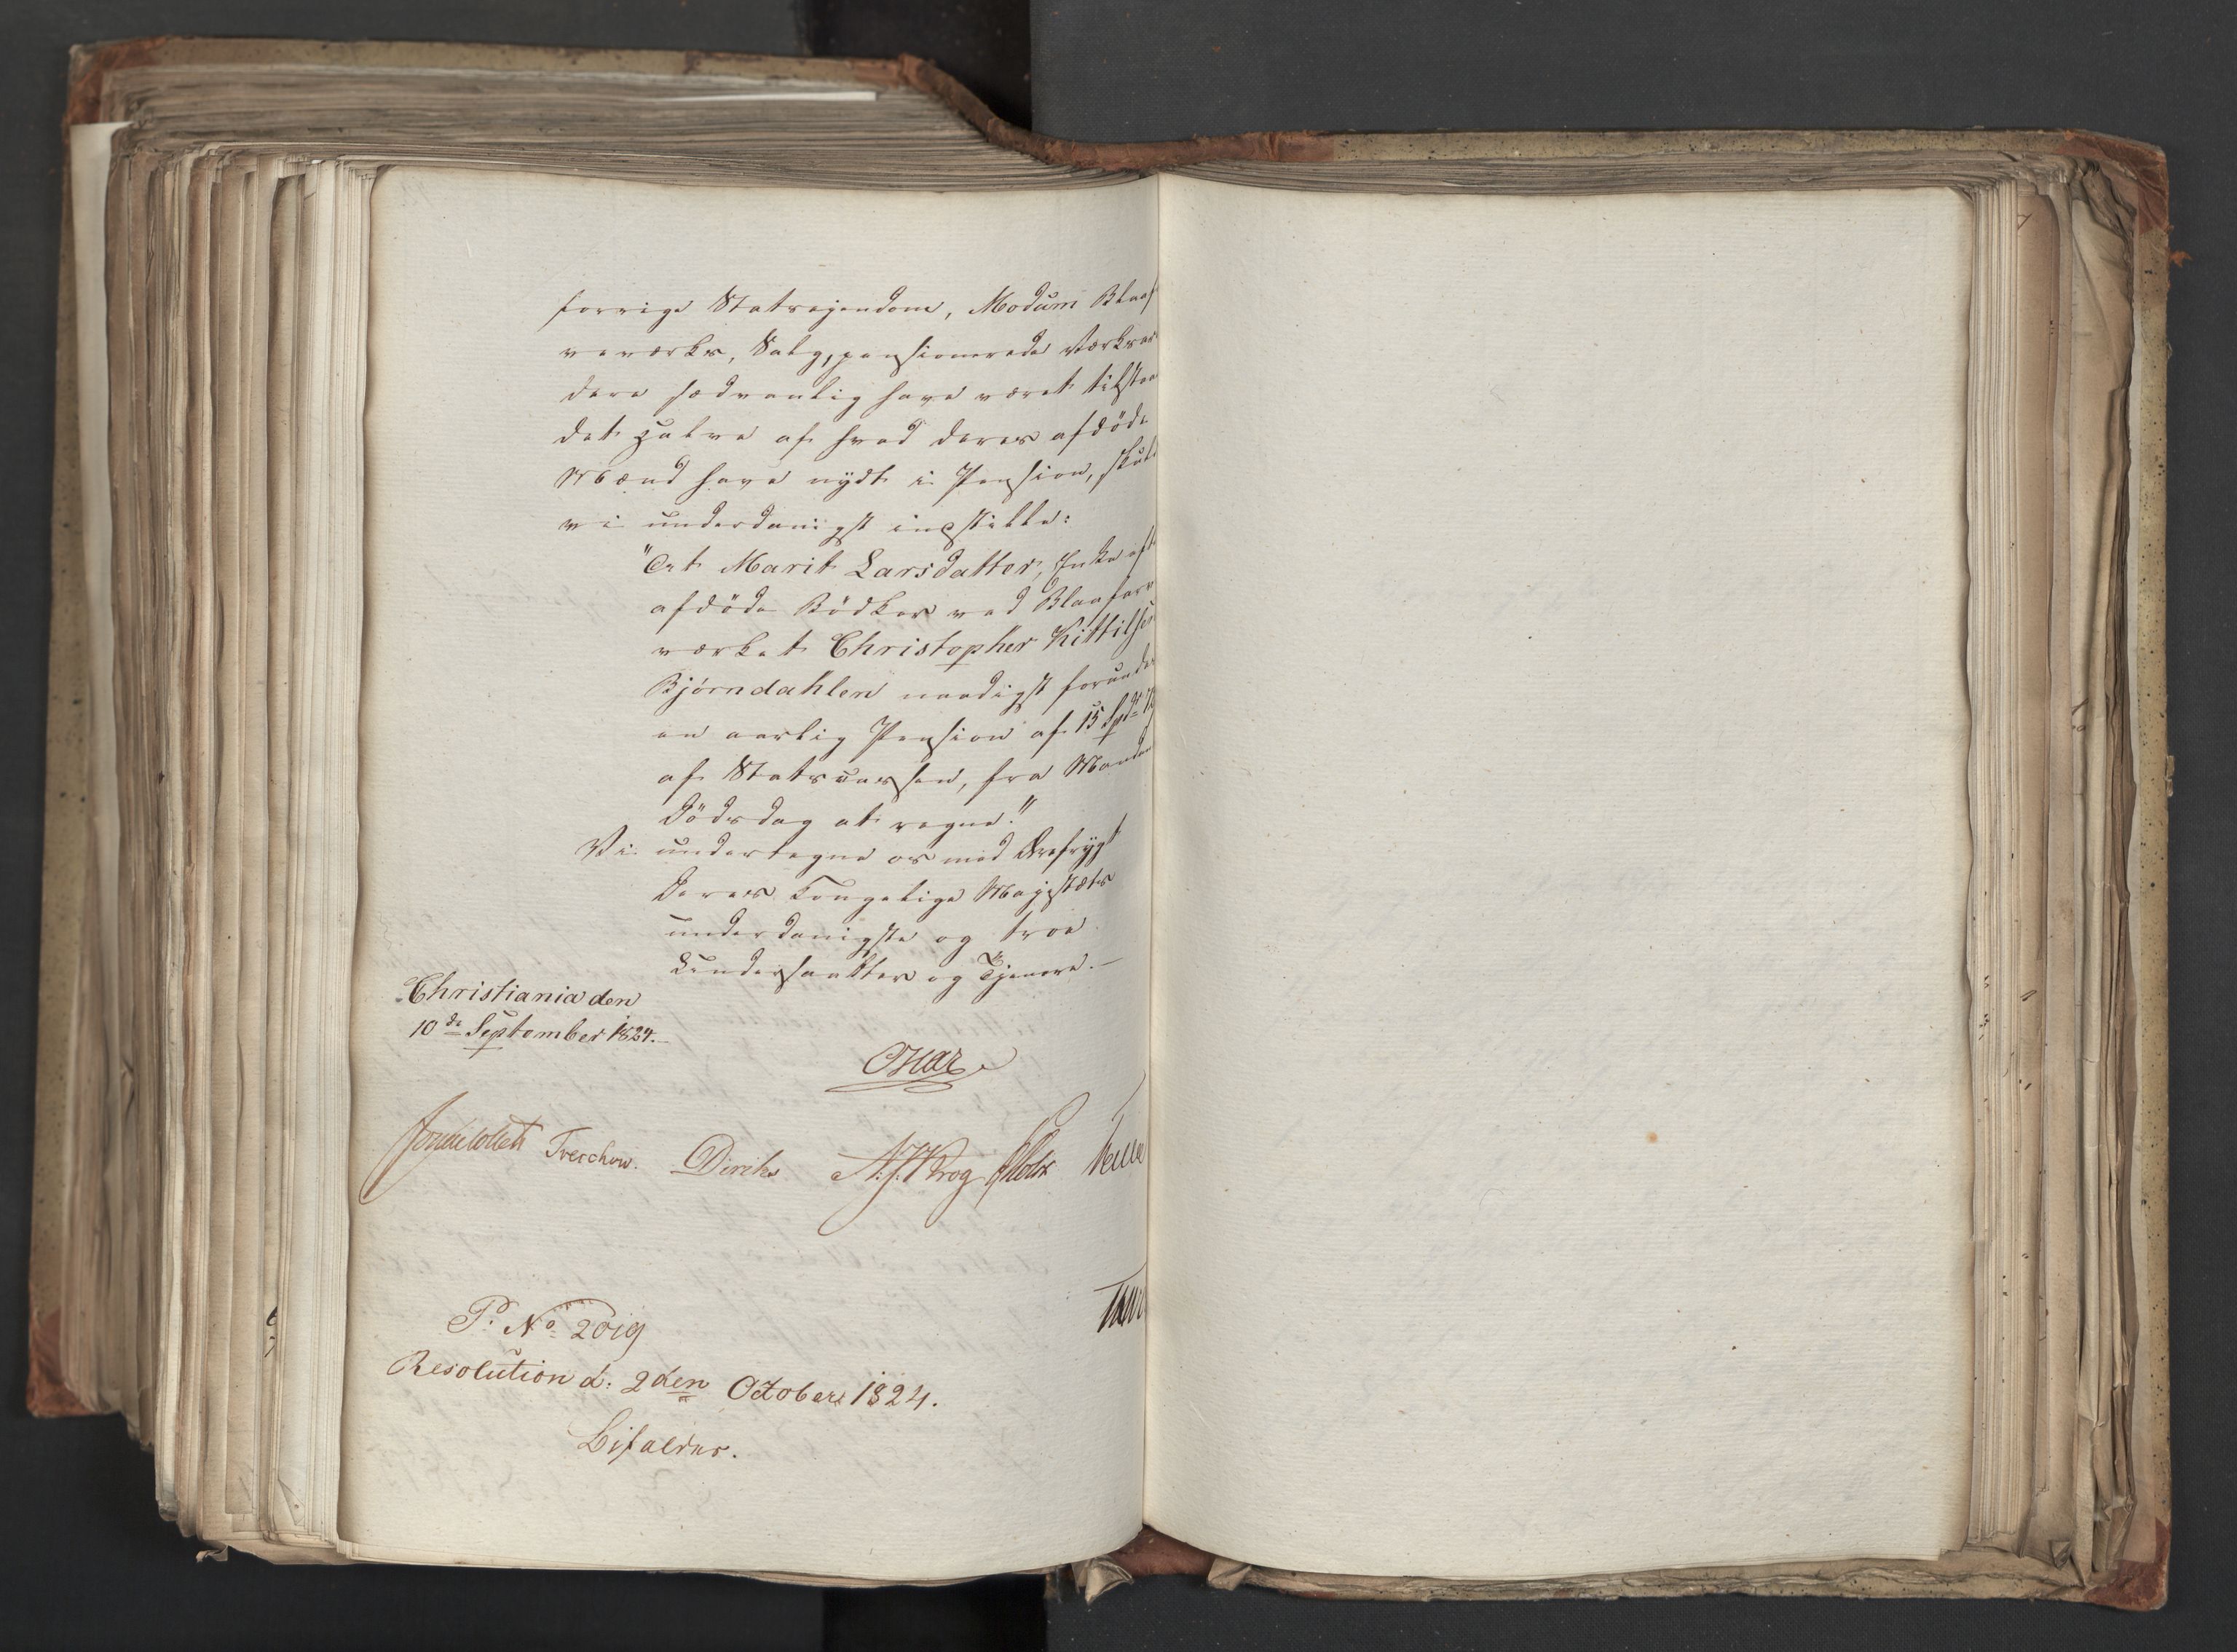 forrige Statsejendom, Modum Blaaf
veværks, Salg, pensionerede Værksar
dere sædvanlig have været tilstaa
det halve af hvad deres afdöde
Mænd have nydt i Pension, skul
vi underdanigst indstille:
"At Marit Larsdatter, Enke eft
afdöde Bödker ved Blaafarv
værket Christopher Kittilsen
Bjørndahlen naadigst forundes
en aarlig Pension af 15 Spd
af Statscassen, fra Manden
Dödsdag at regne."
Vi undertegne os med Ærefrygt
Deres Kongelige Majestæts
underdanigste og troe
Undersaatter og Tjenere.—
Christiania den
10de September 1824.
Collett Treschow. Diriks Krog Motz
P. No 2019
Resolution d: 2den October 1824.
Bifaldes.